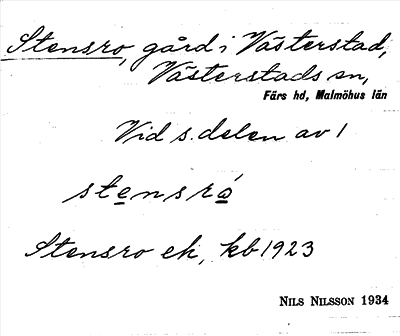 Stensro, gård i Västerstad,
Västerstads sn,
Färs hd, Malmöhus län
Vid s. delen av l
stensró
Stensro ek, kb 1923
NILS NILSSON 1934